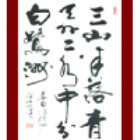 三山半落青
天外二水中分
白鷺洲